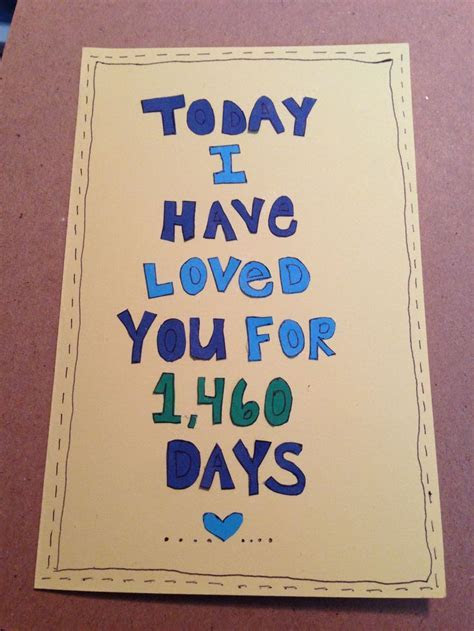 TODAY
I
HAVE
LOVED
YOU FOR
1,460
DAYS